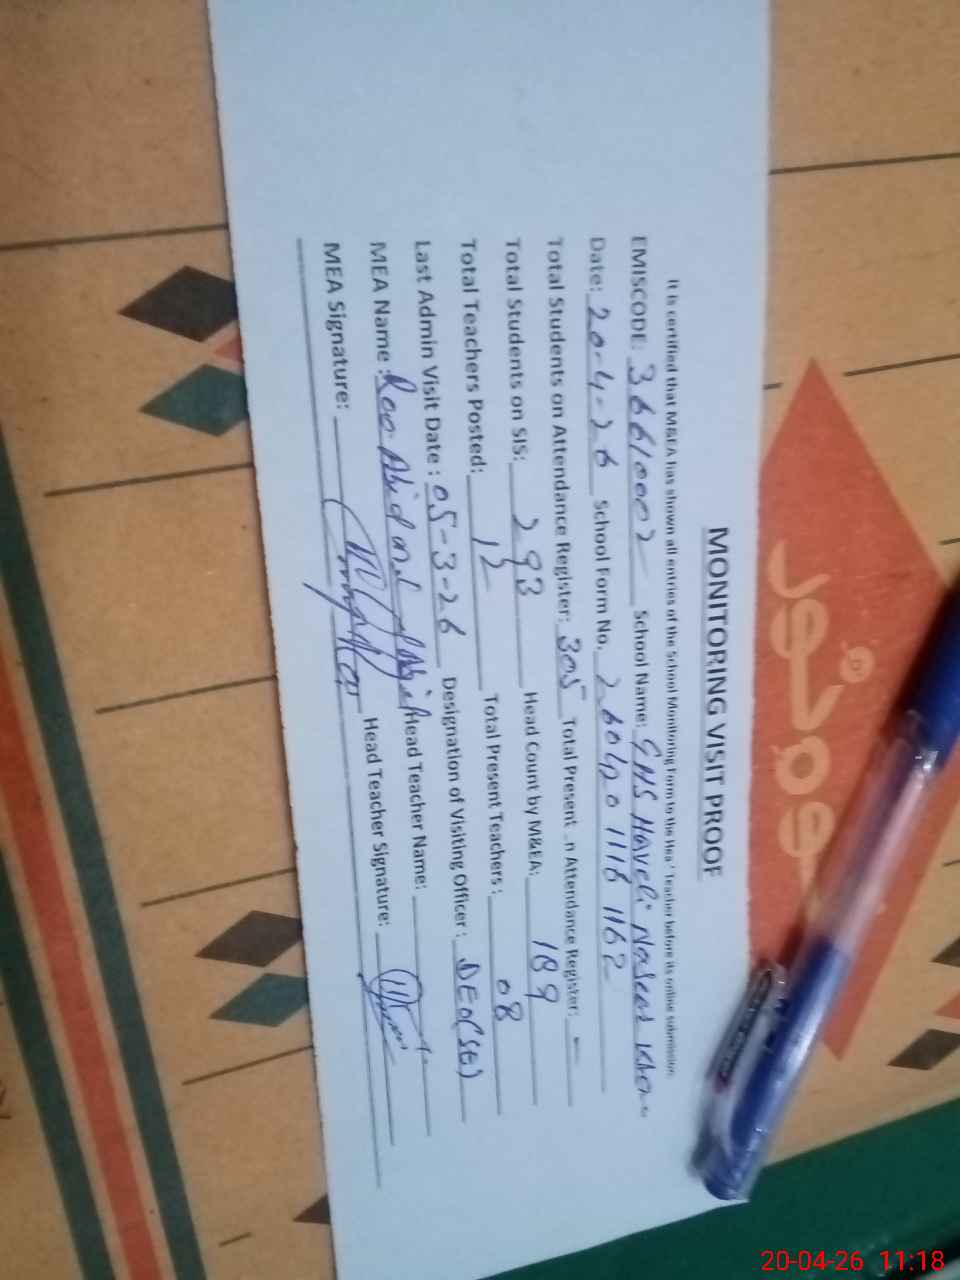 MONITORING VISIT PROOF
It is certified that M&EA has shown all entries of the School Monitoring Form to the Head Teacher before its online submission.
EMISCODE: 36610002 School Name: GHS Haveli Naseer Khan
Date: 20-4-26 School Form No. 2604201116 1162
Total Students on Attendance Register: 305 Total Present on Attendance Register: -
Total Students on SIS: 293 Head Count by M&EA: 189
Total Teachers Posted: 12 Total Present Teachers: 08
Last Admin Visit Date: 05-3-26 Designation of Visiting Officer: DEO(SE)
MEA Name: Rao Abid Head Teacher Name:
MEA Signature: Head Teacher Signature:
20-04-26 11:18